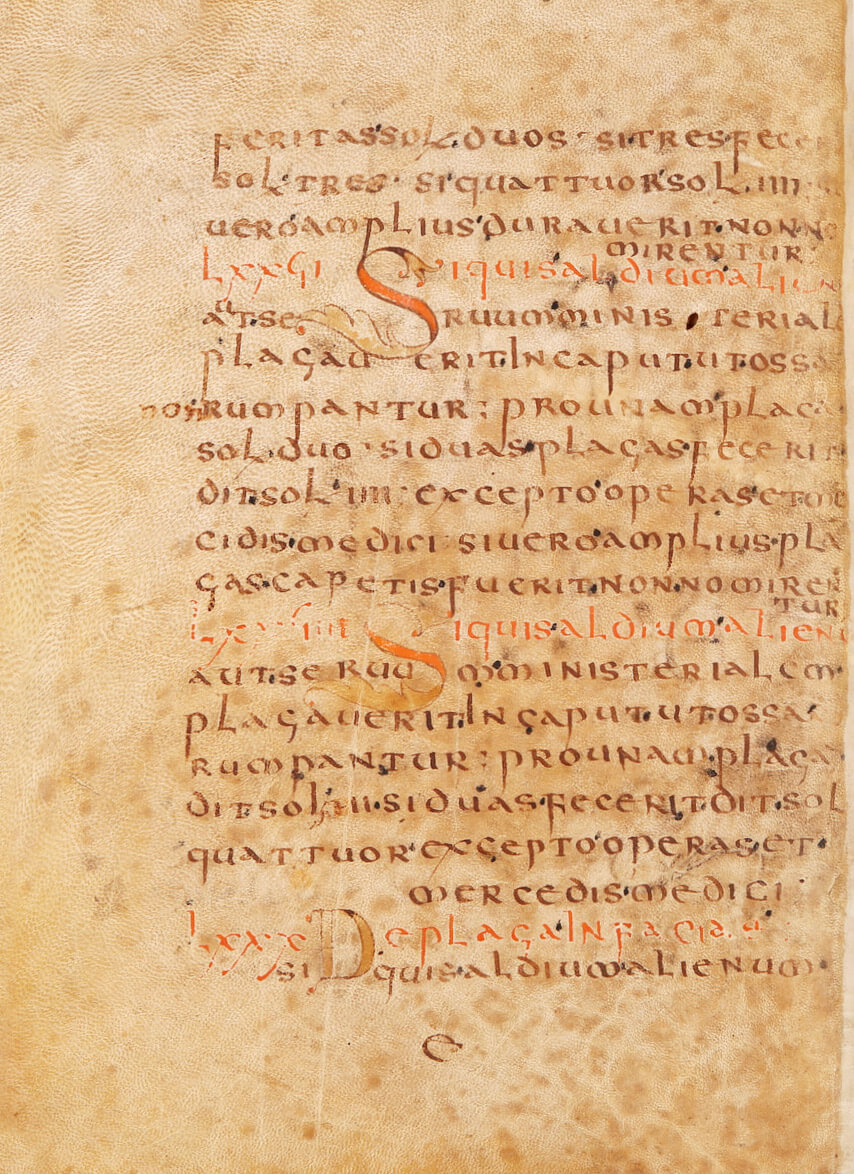 ferit as sol. duos. si tres fece
sol. tres. si quattuor sol. iiii.
uero amplius duraverit. non no
mirentur
LXXUI Si quis aldium alien
aut. seruum minis terial
plagauerit. In caput. ut. ossa
rumpantur; pro unam plaga
sol. duo. si duas plagas fecerit
dit sol. iiii. excepto operas et
cidis medici. si uero amplius pla
gas capetis fuerit. non nomiren
tur
Si quis aldium alienu
aut. seruum ministerialem
plagauerit. In caput. ut. ossa
rumpantur; pro unam plaga
dit sol. ii. si duas fecerit dit. sol
quattuor excepto operas et.
mercedis medici
LXXX De plaga In facia.
si quis aldium alienum
e